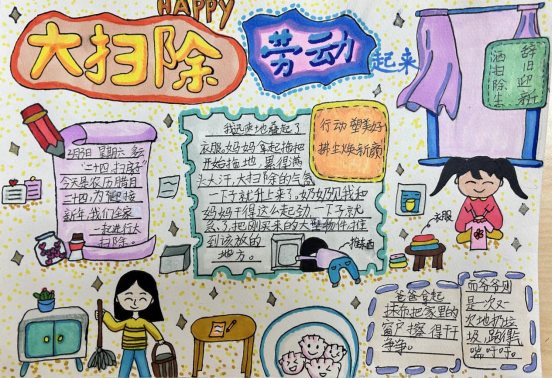 HAPPY
大扫除
劳动
起来
辞旧迎新
洒扫除尘
2月3日 星期六 多云
"二十四,扫房子"
今天是农历腊月
二十四,为迎接
新年,我们全家
一起进行大
扫除。
我迅速地叠起了
衣服,妈妈拿起拖把
开始拖地,累得满
头大汗,大扫除的气氛
一下就升上来了。奶奶见我和
妈妈干得这么起劲,一下子就
把刚买来的大型物件,推
到该放的
地方。
行动塑美好
拂尘焕新颜
推东西
衣服
爸爸拿起
抹布把家里的
窗户擦得干
净净。
而爷爷则
是一次又一
次地扔垃
圾,跑得气
喘吁吁。